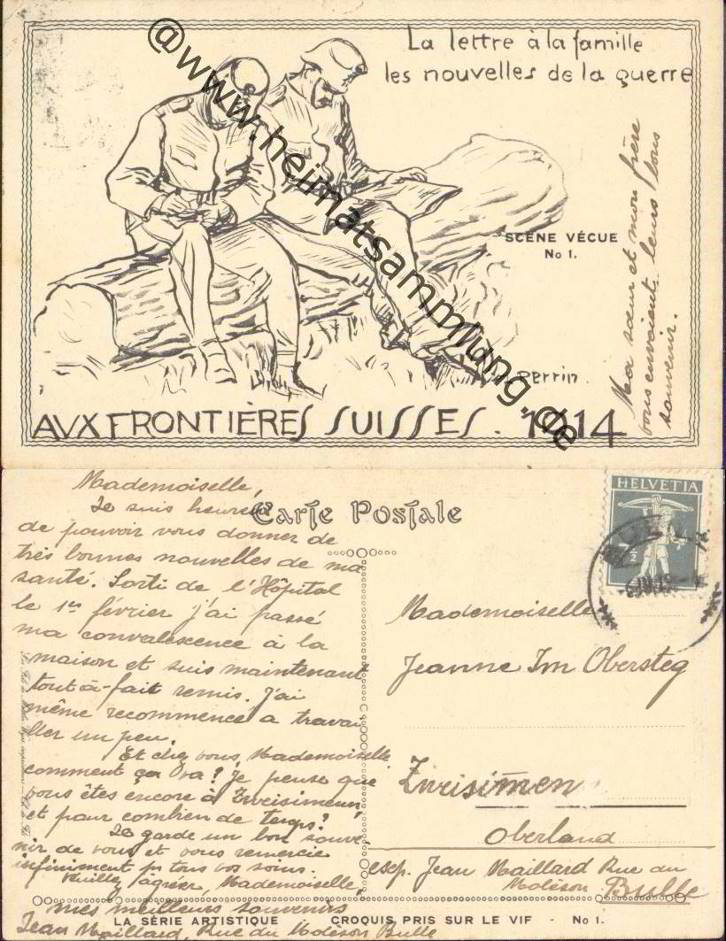 La lettre à la famille
les nouvelles de la guerre
@www.heimatsammlung.de
SCÈNE VÉCUE
No 1.
Ma sœur et mon frère
vous envoient leurs bons
souvenir.
Perrin
AVX FRONTIÈRES SUISSES. 1914
Carte Postale
HELVETIA
Mademoiselle,
Je suis heureux
de pouvoir vous donner de
très bonnes nouvelles de ma
santé. Sorti de l'Hôpital
le 1er février j'ai passé
ma convalescence à la
maison et suis maintenant
tout-à-fait remis. J'ai
même recommencé a travai-
ller un peu.
Et chez vous, Mademoiselle
comment ça va? Je pense que
vous êtes encore à Zweisimmen,
et pour combien de temps?
Je garde un bon souve-
nir de vous et vous remercie
infiniment pr tous vos soins.
Veuillez agréer, Mademoiselle,
mes meilleurs souvenirs
Jean Maillard, Rue du Moléson Bulle
Mademoiselle
Jeanne Im Obersteg
Zweisimmen
Oberland
exp. Jean Maillard Rue du
Moléson Bulle
LA SÉRIE ARTISTIQUE CROQUIS PRIS SUR LE VIF - No 1.